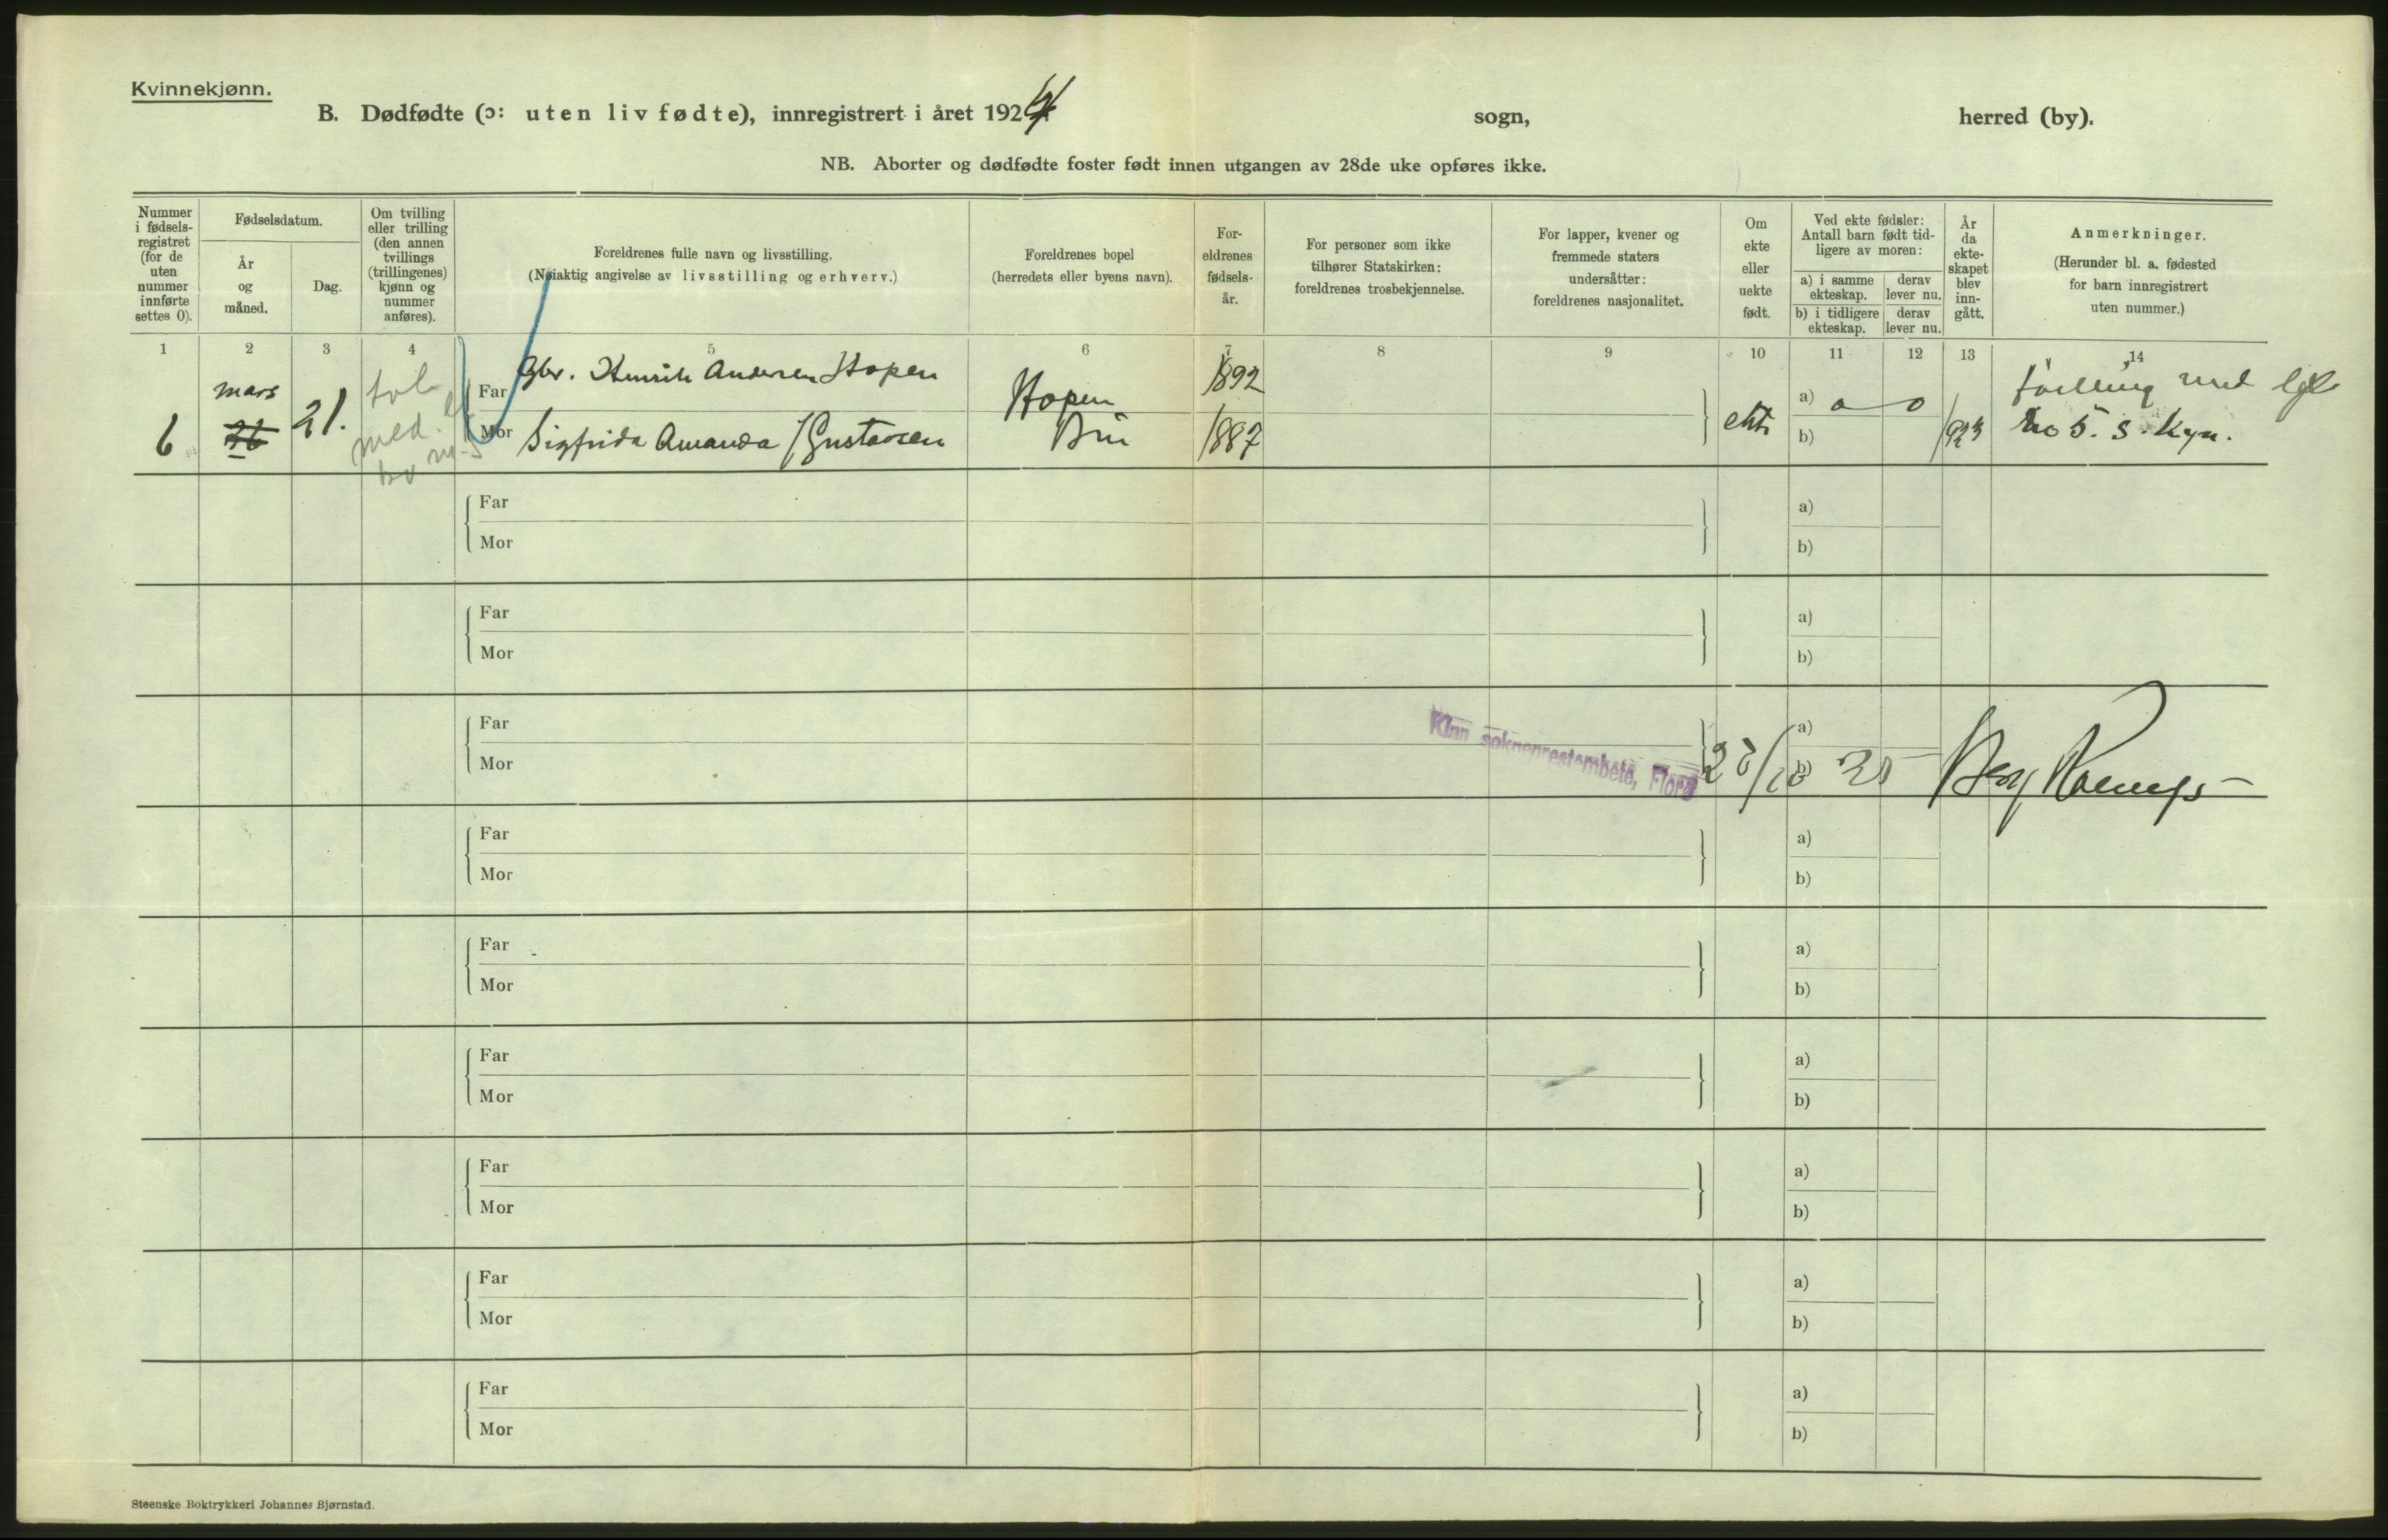 Kvinnekjønn.
B. Dødfødte (ɔ: uten liv fødte), innregistrert i året 1924 sogn, herred (by).
NB. Aborter og dødfødte foster født innen utgangen av 28de uke opføres ikke.
Nummer i fødsels-registret (for de uten nummer innførte settes 0).
Fødselsdatum.
År og måned.
Dag.
Om tvilling eller trilling (den annen tvillings (trillingenes) kjønn og nummer anføres).
Foreldrenes fulle navn og livsstilling.
(Nøiaktig angivelse av livsstilling og erhverv.)
Foreldrenes bopel
(herredets eller byens navn).
For-eldrenes fødsels-år.
For personer som ikke tilhører Statskirken: foreldrenes trosbekjennelse.
For lapper, kvener og fremmede staters undersåtter: foreldrenes nasjonalitet.
Om ekte eller uekte født.
Ved ekte fødsler: Antall barn født tid-ligere av moren:
a) i samme ekteskap.
derav lever nu.
b) i tidligere ekteskap.
derav lever nu.
År da ekte-skapet blev inn-gått.
Anmerkninger.
(Herunder bl. a. fødested for barn innregistrert uten nummer.)
1 2 3 4 5 6 7 8 9 10 11 12 13 14
6 mars 21.
med
Far Gbr. Henrik Andersen Hopen Hopen 1892
Mor Sigfrida Amanda f Gustavsen Bru 1887
ekte a) 0 0 b) 1923
tvilling med
no 5. s. Kyn.
Far a)
Mor b)
Far a)
Mor b)
Far a)
Mor b)
Kinn sokneprestembete, Florø
Far a)
Mor b)
Far a)
Mor b)
Far a)
Mor b)
Far a)
Mor b)
Far a)
Mor b)
Far a)
Mor b)
Steenske Boktrykkeri Johannes Bjørnstad.